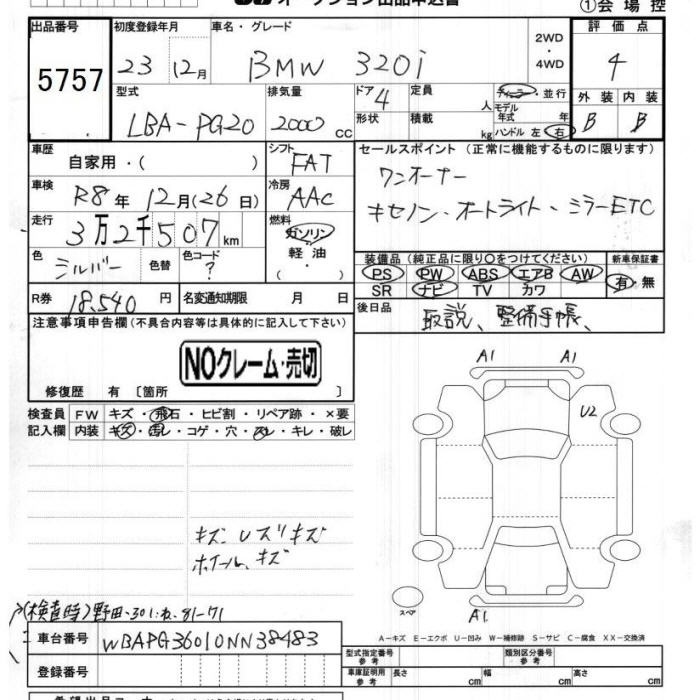 オークション出品申込書 ①会場控
出品番号 初度登録年月 車名・グレード 2WD・4WD 評価点
5757 23 12月 BMW 320i 4
型式 排気量 ドア 4 定員 人 ディーラー・並行 外装 内装
LBA-PG20 2000cc 形状 積載 kg モデル年式 年 ハンドル 左 右 B B
車歴 自家用・( ) シフト FAT セールスポイント (正常に機能するものに限ります)
車検 R8年 12月(26日) 冷房 AAC ワンオーナー
走行 3万2千507km 燃料 ガソリン・軽油・( ) キセノン・オートライト・ミラーETC
色 シルバー 色替 色コード ? 装備品 (純正品に限り○をつけてください) 新車保証書
PS PW ABS エアB AW 有・無
SR ナビ TV カワ
R券 18,540円 名変通知期限 月 日 後日品 取説、整備手帳、
注意事項申告欄 (不具合内容等は具体的に記入して下さい)
NOクレーム・売切
修復歴 有 [箇所 ]
検査員 FW キズ・飛石・ヒビ割・リペア跡・×要
記入欄 内装 キズ・汚レ・コゲ・穴・スレ・キレ・破レ
A1 A1
U2
キズ、Uズリキズ
ホイール、キズ
スペア
A1
(検査時)野田
A-キズ E-エクボ U-凹み W-補修跡 S-サビ C-腐食 XX-交換済
車台番号 WBAPG36010NN38483
登録番号
型式指定番号 参考 類別区分番号 参考
車庫証明用 参考 長さ cm 幅 cm 高さ cm
希望出品コーナー